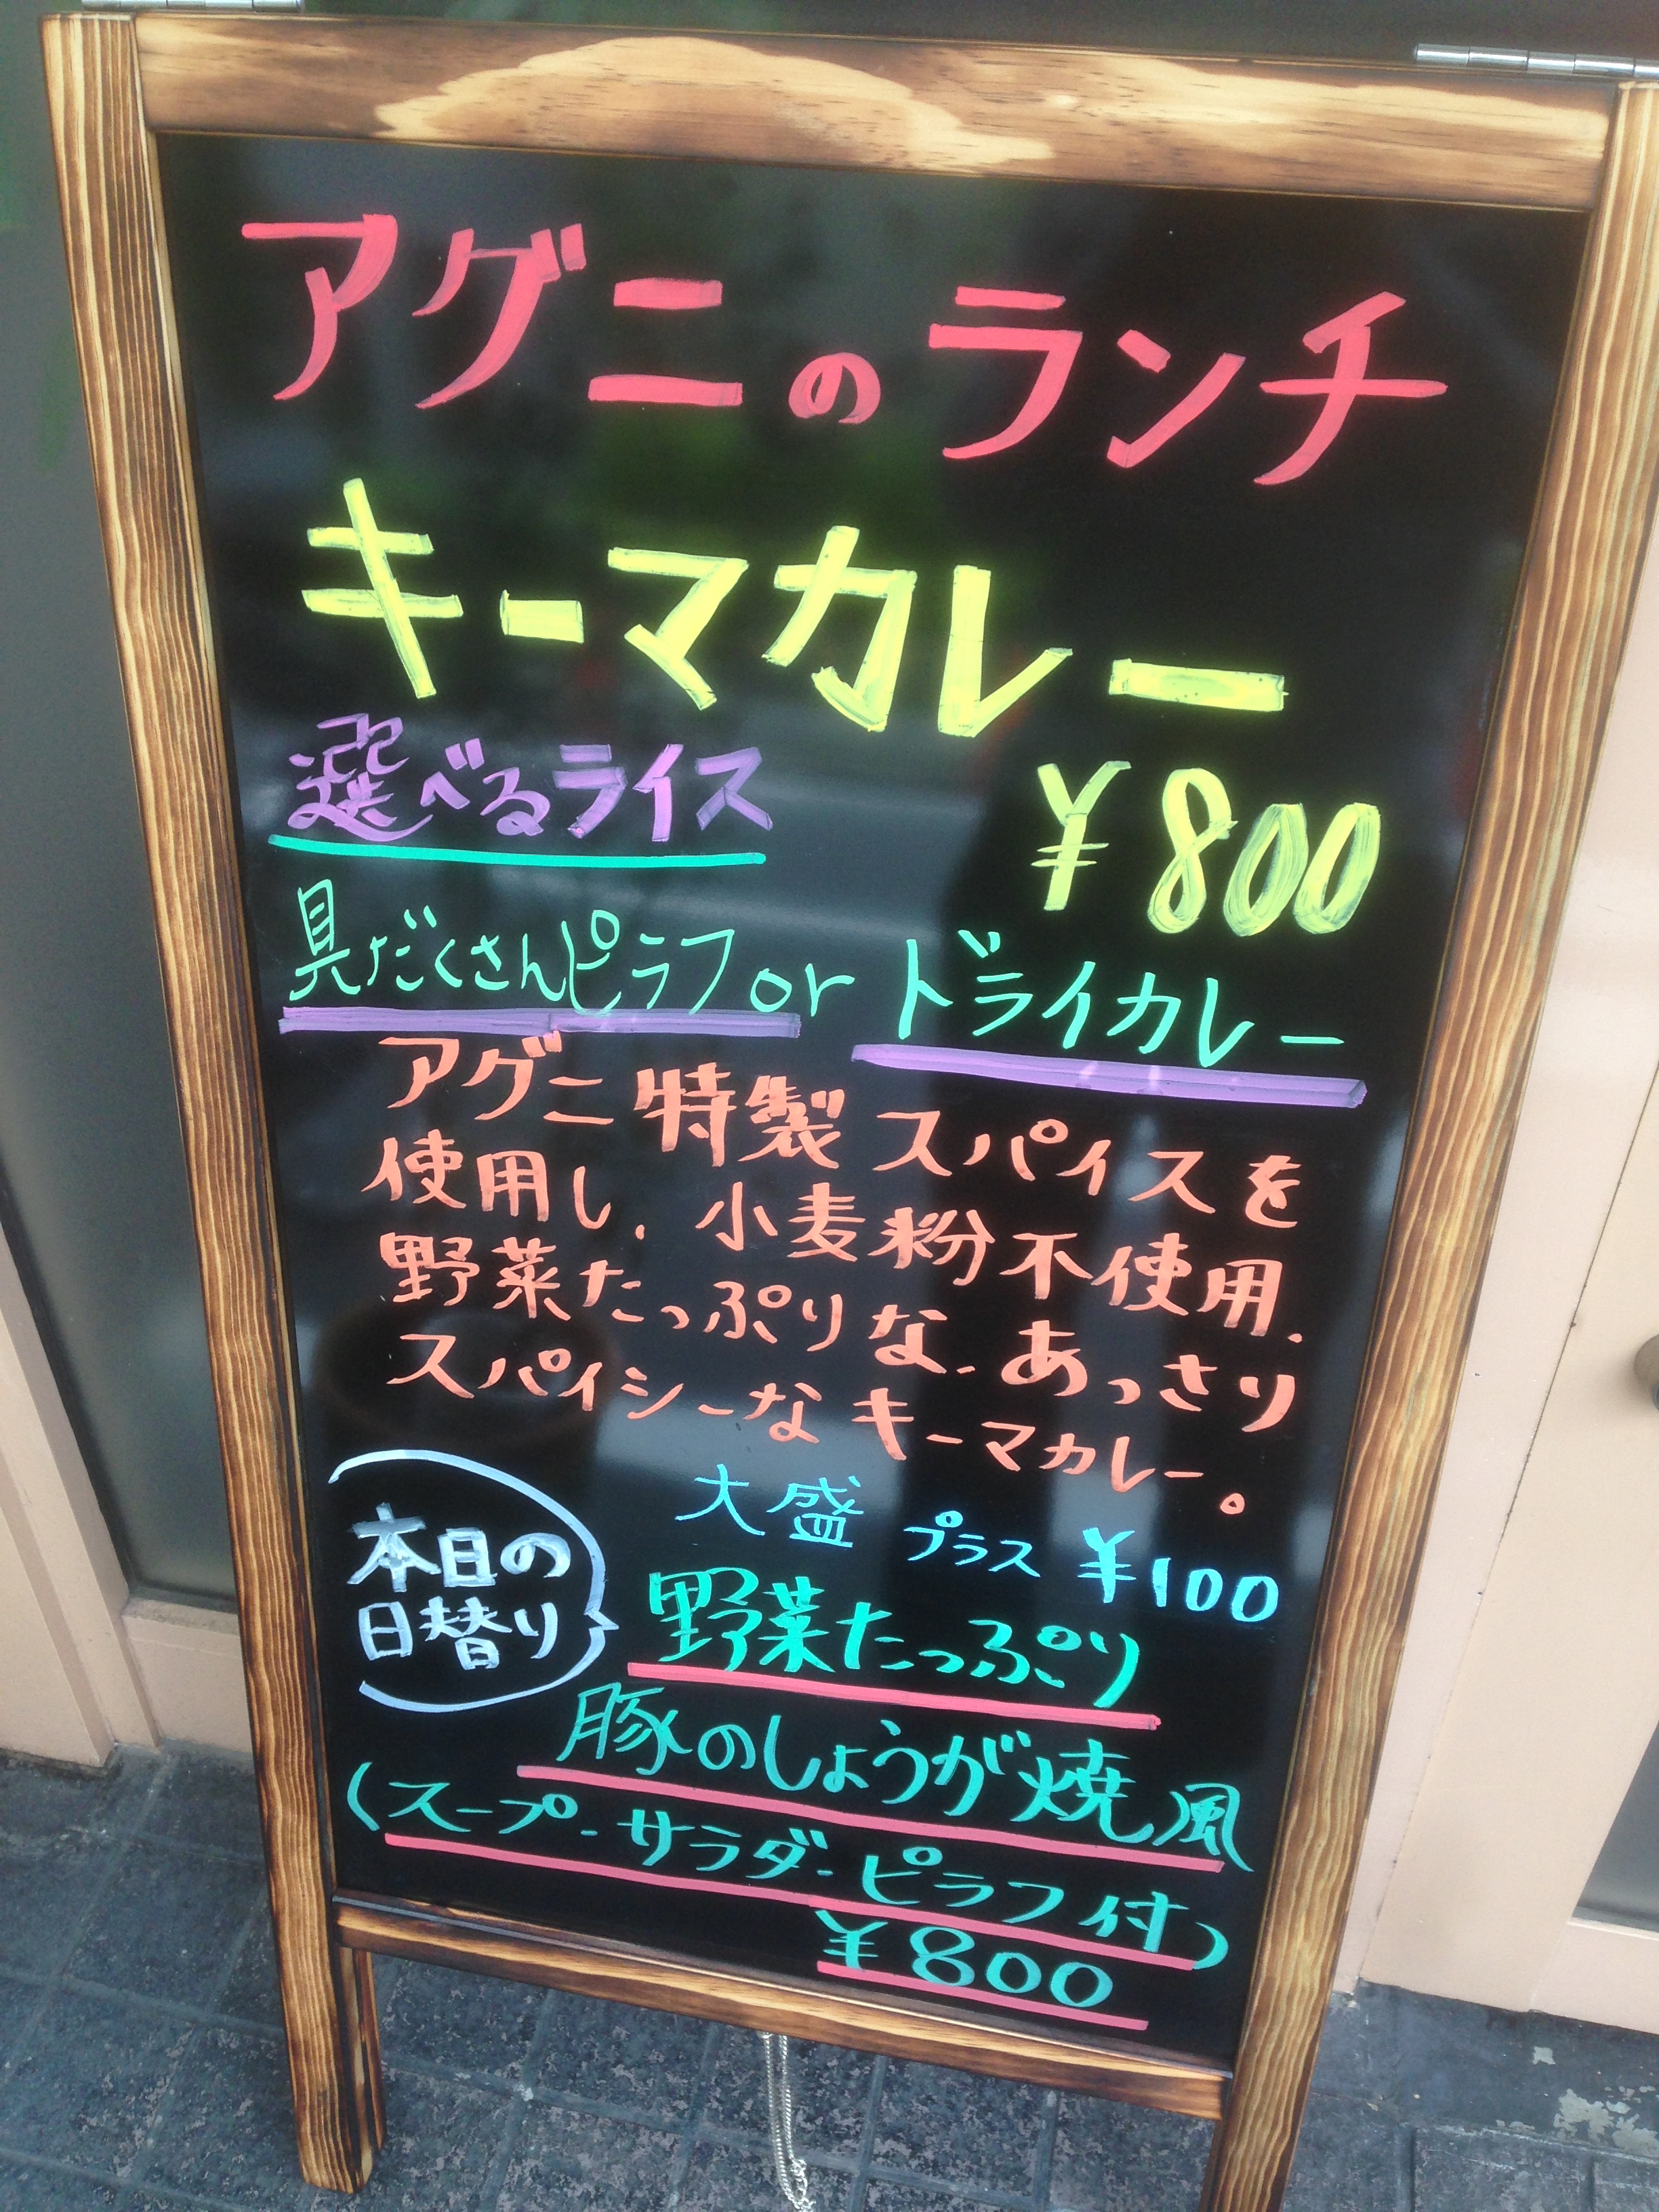 アグニのランチ
キーマカレー
選べるライス
¥800
具だくさんピラフor ドライカレー
アグニ特製スパイスを
使用し、小麦粉不使用、
野菜たっぷりな、あっさり
スパイシーなキーマカレー。
大盛 プラス ¥100
本日の
日替り
野菜たっぷり
豚のしょうが焼風
(スープ、サラダ、ピラフ付)
¥800